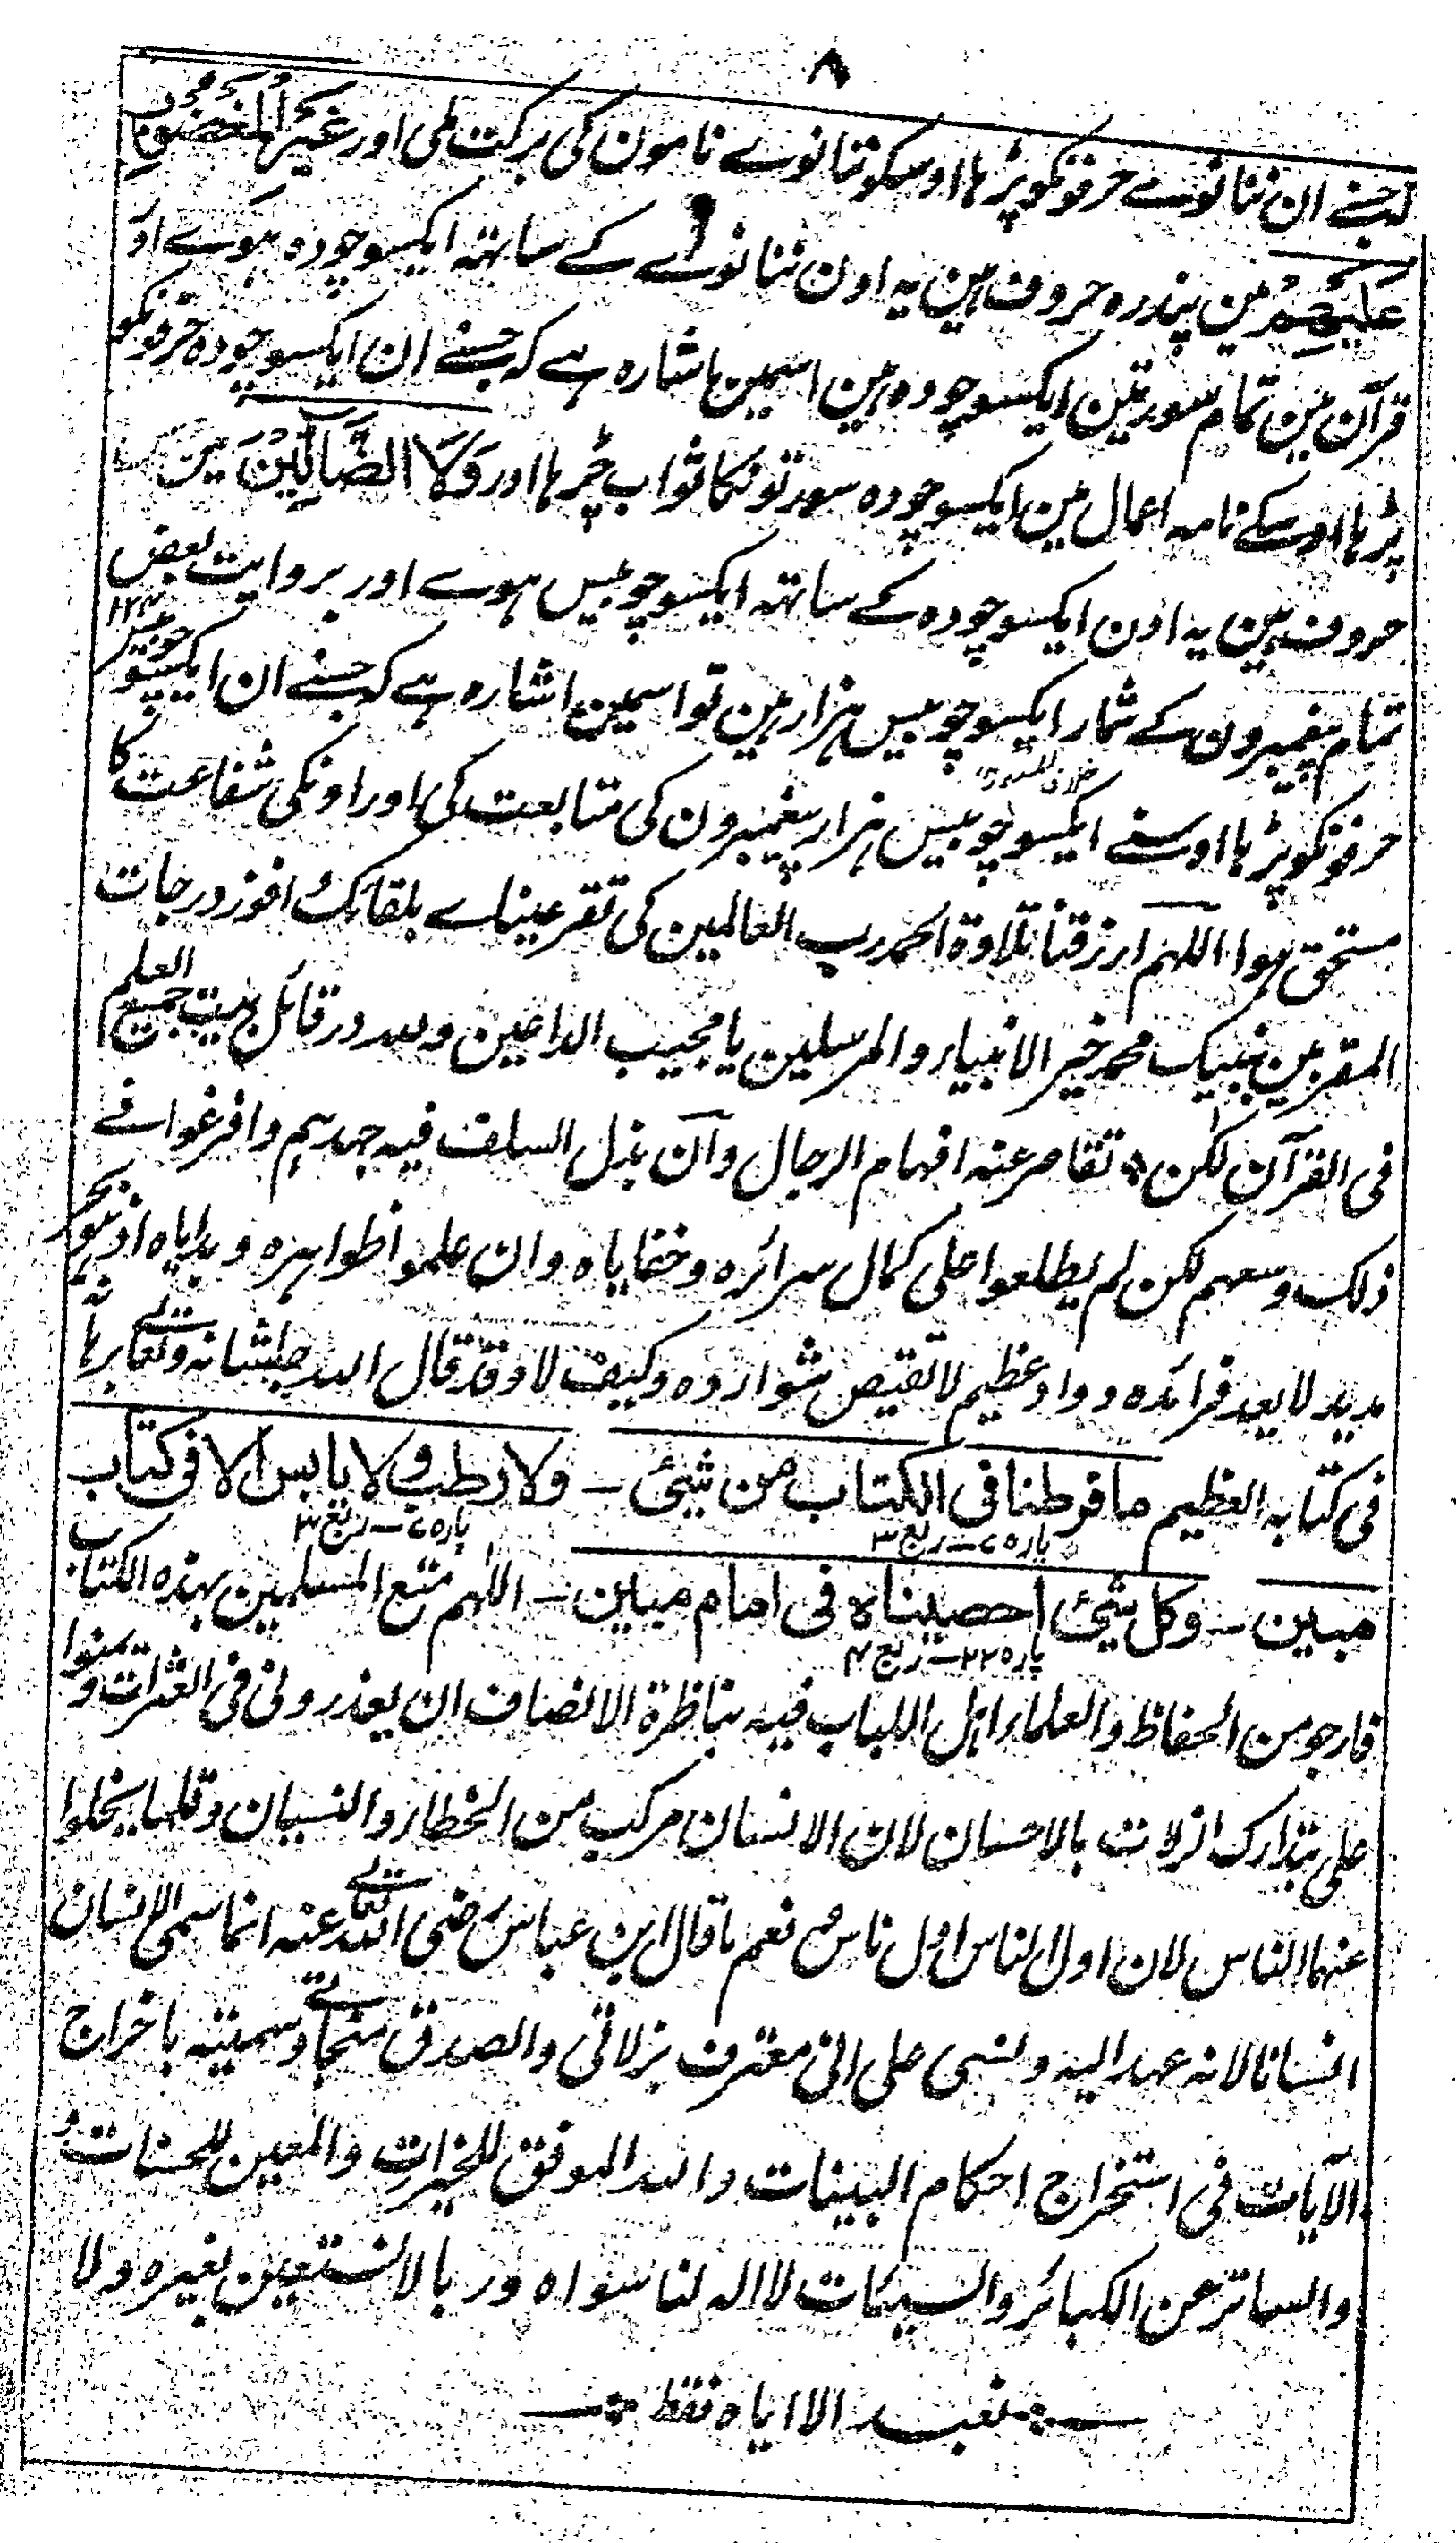 ۸
کہ جسنے ان ننانوے حرفونکو پڑہا اوسکو ننانوے نامون کی برکت ملی اور غَیْرِ الْمَغْضُوْبِ
عَلَیْهِمْ مین پندرہ حروف ہین یہ اون ننانوے کے ساتہہ ایکسو چودہ ہوے اور
قرآن مین تمام سورتین ایکسو چودہ ہین اسمین اشارہ ہے کہ جسنے ان ایکسو چودہ حرفونکو
پڑہا اوسکے نامہ اعمال مین ایکسو چودہ سورتونکا ثواب چڑہا اور وَلَا الضَّآلِّیْنَ مین
حروف ہین یہ اون ایکسو چودہ کے ساتہہ ایکسو چوبیس ہوے اور بروایت بعض
تمام پیغمبرون کے شمار ایکسو چوبیس ہزار ہین تو اسمین اشارہ ہے کہ جسنے ان ایکسو چوبیس ۱۲۴
حرفونکو پڑہا اوسنے ایکسو چوبیس ہزار پیغمبرون کی متابعت کی اور اونکی شفاعت کا
مستحق ہوا اللہم ارزقنا تلاوۃ الحمد رب العالمین کی تقر عیناے بلقائک افوز درجات
المقربین بنبیک محمد خیر الانبیاء والمرسلین یا مجیب الداعین وللہ در قائل بیت جمیع العلم
فی القرآن لکن ٭ تقاصر عنہ افہام الرجال وآن بذل السلف فیہ جہدہم وافرغوا فے
ذلک وسعہم لکن لم یطلعوا علی کمال سرائرہ وخفایاہ وان علموا ظواہرہ وبدایاہ اذ ہو بحر
مدید لا یعد فرائدہ وواد عظیم لا تقیص شواردہ وکیف لا وقد قال اللہ جلشانہ وتعالے برہانہ
فی کتابہ العظیم ما فرطنا فی الکتاب من شیئ – ولا رطب ولا یابس الا فی کتاب
پارہ ۷ – ربع ۳ پارہ ۷ – ربع ۳
مبین – وکل شیئ احصیناہ فی امام مبین – اللہم متع المسلمین بہذہ الکتاب
پارہ ۲۲ – ربع ۴
فارجو من الحفاظ والعلماء اہل اللباب فیہ بناظرۃ الانصاف ان یعذرونی فی العثرات و یمنوا
علی بتدارک الزلات بالاحسان لان الانسان مرکب من الخطاء والنسیان وقلما یخلوا
عنہما الناس لان اول الناس اول ناس نعم ما قال ابن عباس رضی اللہ تعالے عنہ انما سمی الانسان
انسانا لانہ عہد الیہ ونسی علی انی معترف بزلاتی والصدق منجاۃ وسمیتہ باخراج
الآیات فی استخراج احکام البینات واللہ الموفق للخیرات والمعین للحسنات و
والساتر عن الکبائر والسیئات لا الہ لنا سواہ ورب لا نستعین بغیرہ ولا
نعبد الا ایاہ فقط